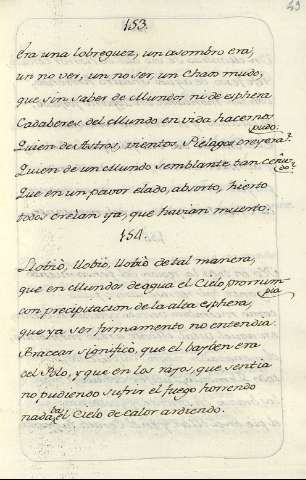 49
153.
Era una lobreguez, un asombro era,
un no ver, un no ser, un Chaos mudo,
que sin saber de Mundos ni de esphera
Cadaberes del Mundo en vida hacernos
pudo.
Quien de Astros, vientos, Pielagos creyera?
Quien de un Mundo semblante tan ceñu-
do?
Que en un pavor elado, absorto, hierto
todos creìan ya, que havian muerto.
154.
Llobiò, llobiò, llobiò de tal manera,
que en Mundos de agua el Cielo prorrum-
pia
con precipitacion de la alta esphera,
que ya ser firmamento no entendia.
Bracear significò, que el bayben era
del Polo, y que en los rayos, que sentia
no pudiendo sufrir el fuego horrendo
nadaba el Cielo de calor ardiendo.